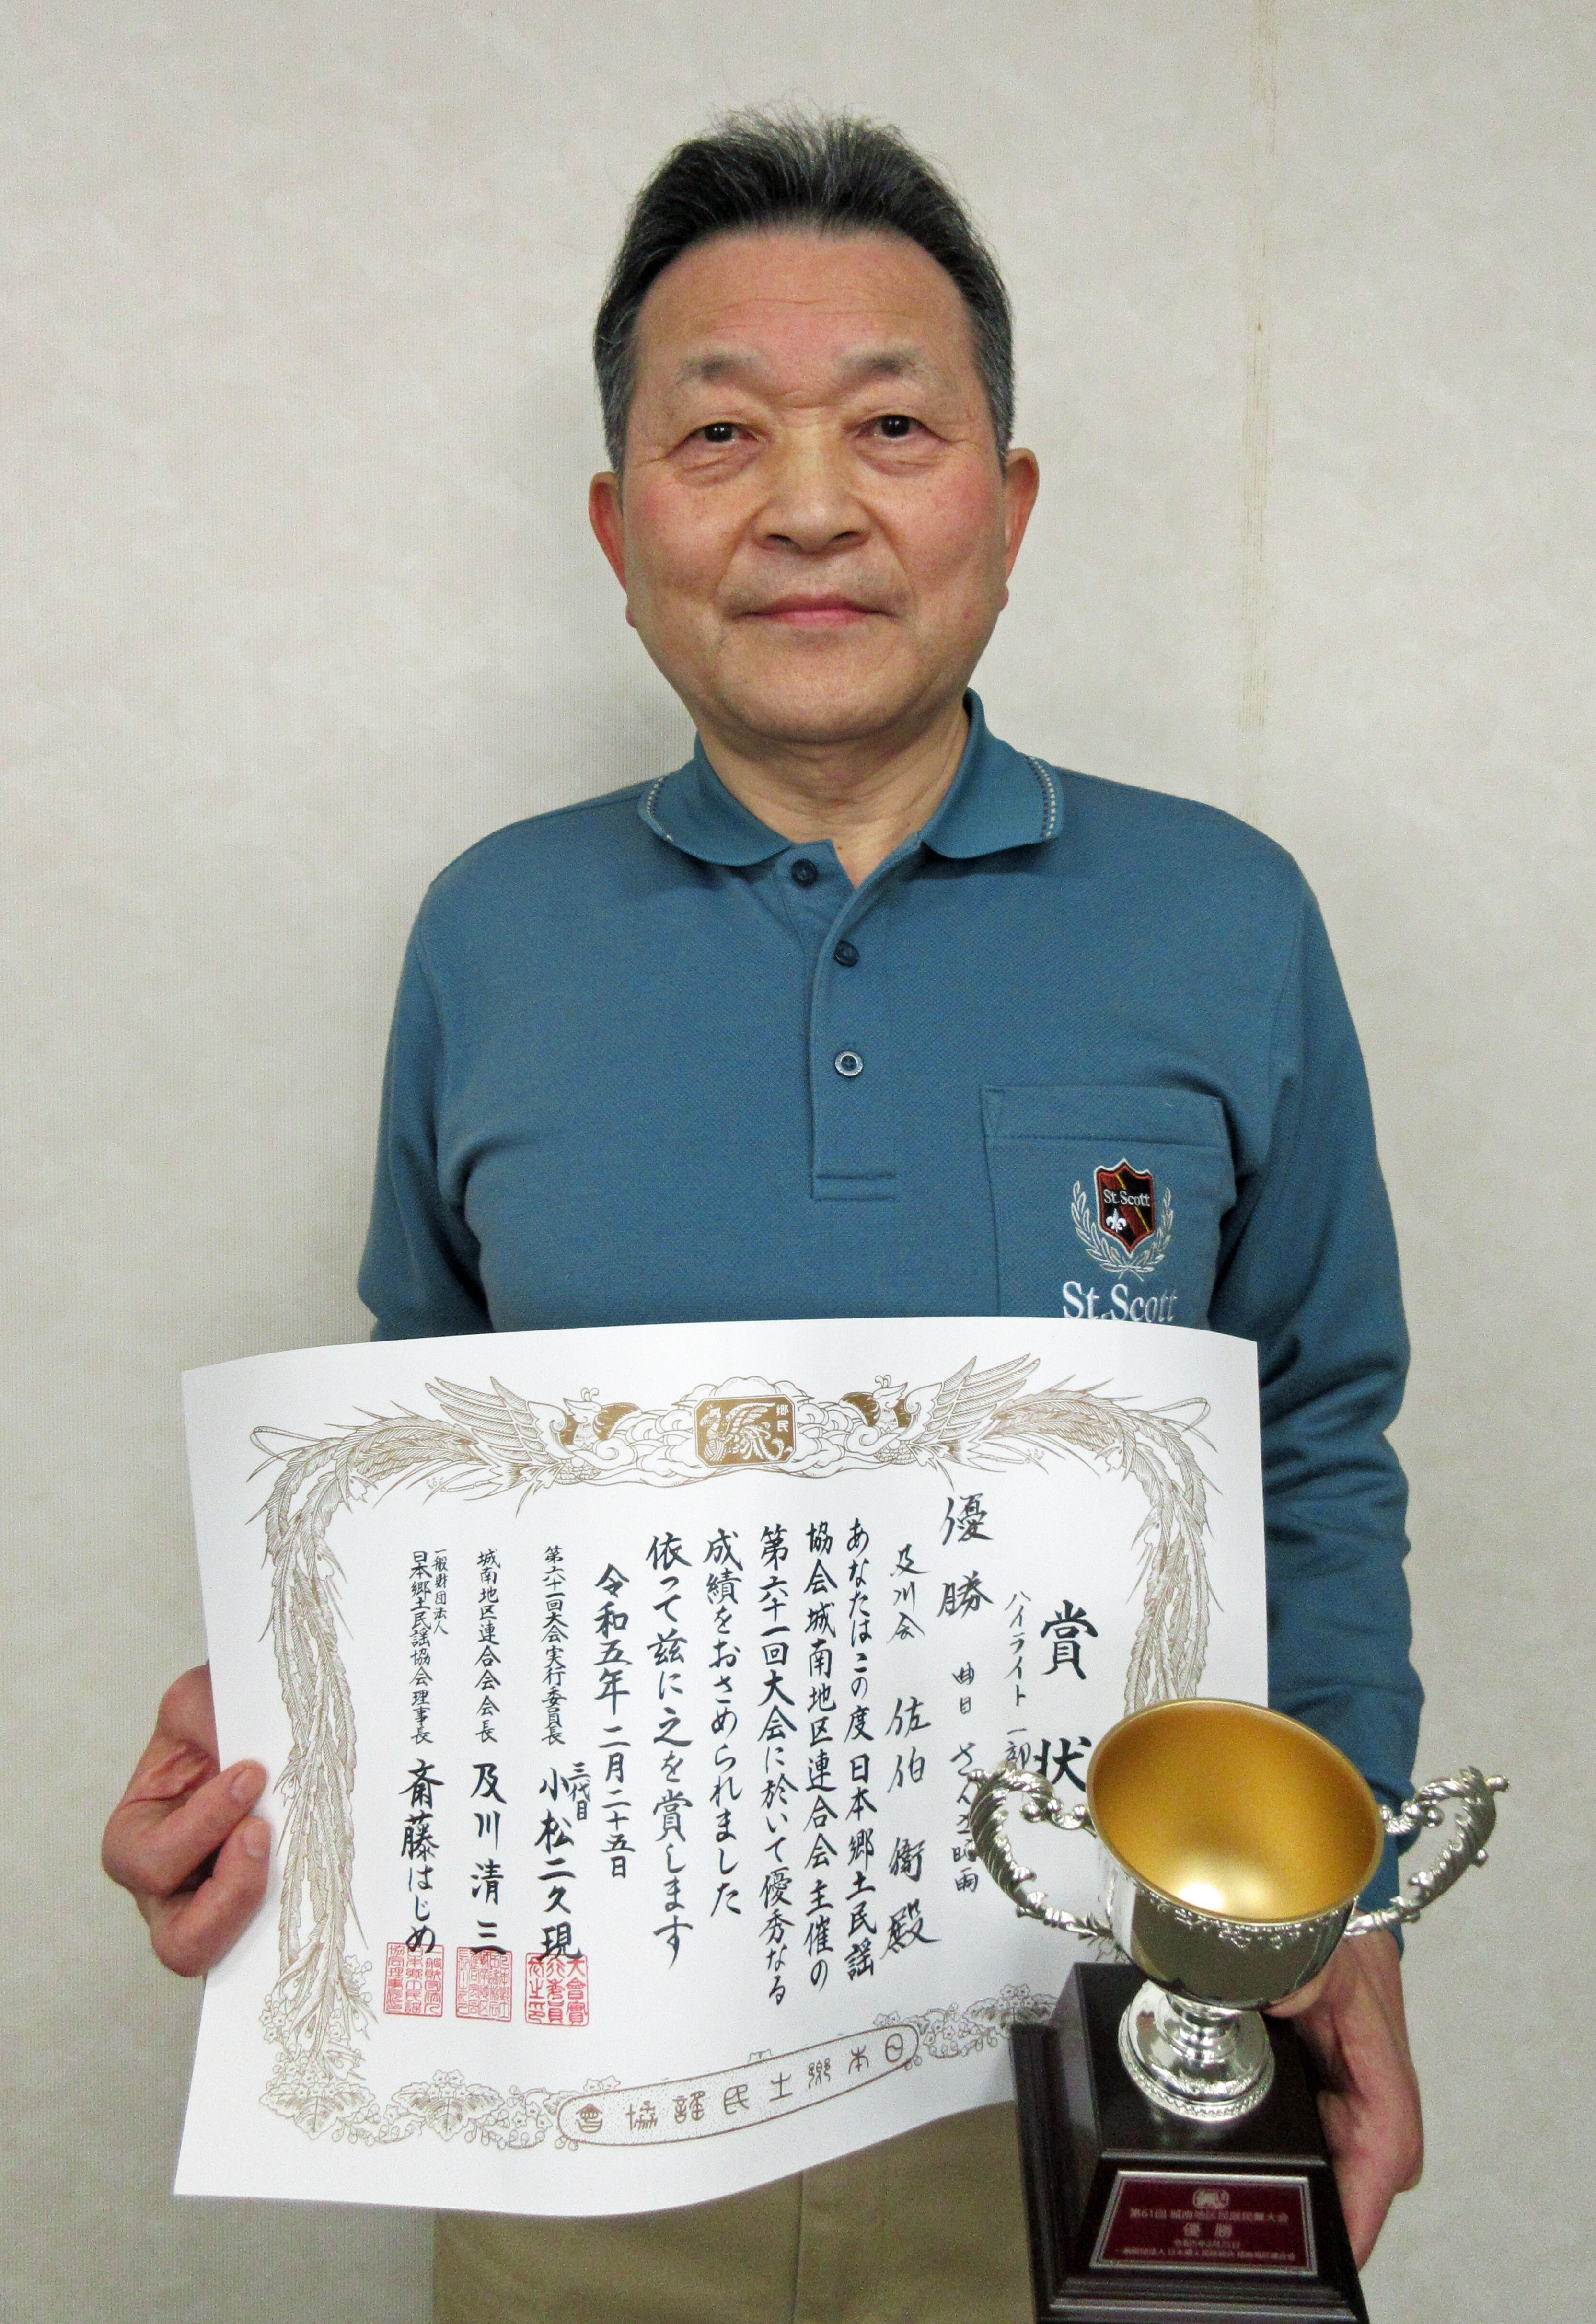 St.Scott
St.Scott
郷民
賞状
ハイライト一部
優勝
曲目 さんさ時雨
及川会 佐伯 衞殿
あなたはこの度日本郷土民謡
協会城南地区連合会主催の
第六十一回大会に於いて優秀なる
成績をおさめられました
依って茲に之を賞します
令和五年二月二十五日
第六十一回大会実行委員長 三代目 小松二久現
城南地区連合会会長 及川清三
一般財団法人
日本郷土民謡協会理事長 斎藤はじめ
日本郷土民謡協會
第61回 城南地区民謡民舞大会
優勝
令和5年2月25日